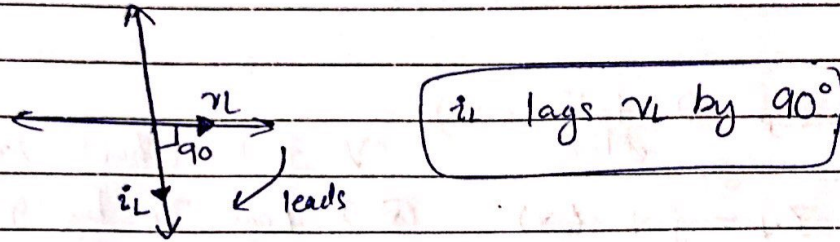 vL
90
iL
leads
iL lags vL by 90°